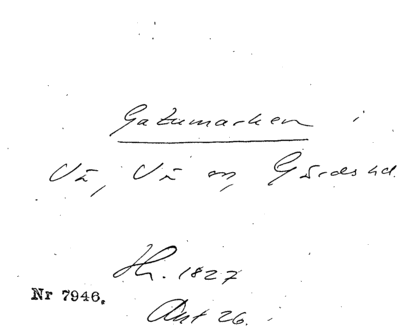 Gatumarken i
Vä, Vä sn, Gärds hd.
1827
Nr 7946.
Akt 26.